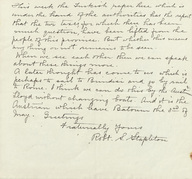 This week the Turkish paper here which is
under the hand of the authorities has the report
that the tax levies for which there has been
much question, have been lifted from the
people of this province. But whether this means
any thing or not remains to be seen.
When we see each other then we can speak
about these things more.
A later thought has come to us which is
perhaps to sail to Brindisi and go by rail
to Rome. I think we can do this by the Austrian
Lloyd without changing boats. And it is the
Austrian which leaves Batoum the 3rd of
May. Greetings
Fraternally Yours
Robt. S. Stapleton